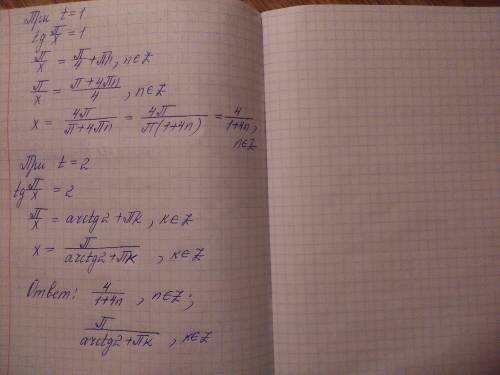 При t=1
tg π/x = 1
π/x = π/4 + πn, n∈Z
π/x = (π+4πn)/4 , n∈Z
x = 4π/(π+4πn) = 4π/(π(1+4n)) = 4/(1+4n),
n∈Z
При t=2
tg π/x = 2
π/x = arctg2 + πk , k∈Z
x = π/(arctg2+πk) , k∈Z
Ответ: 4/(1+4n) , n∈Z ;
π/(arctg2+πk) , k∈Z